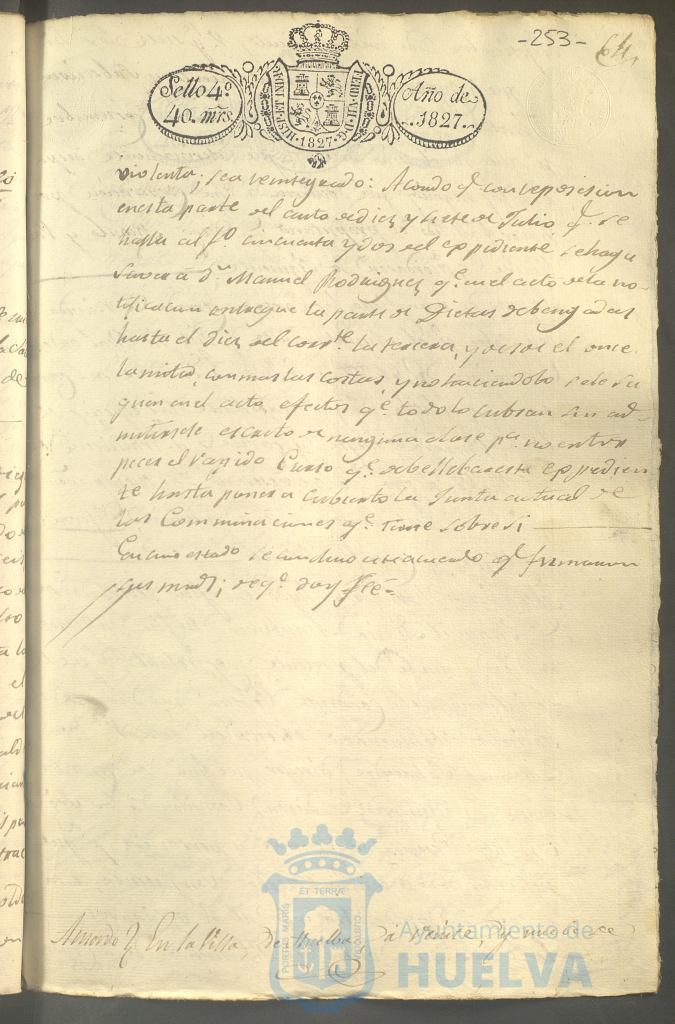 -253- 64,
Sello 4º
40. mrs
HISP. ET IND. R.
FERD. VII. D. G.
·1827·
Año de
.1827.
violenta; sea reintegrado: Acordo q. con reposicion
en esta parte del auto de diez y siete de Julio, q. se
halla al fº cincuenta y dos del expediente se haga
saver a Dn. Manuel Rodriguez, qe. en el acto de la no-
tificacion entregue la parte de Dietas debengadas
hasta el diez del corrte. la tercera, y desde el once
la mitad, con mas las costas, y no haciendolo se le sa
quen en el acto efectos qe. todo lo cubran sin ad-
mitirsele escrito de ninguna clase pa. no entor
pecer el rapido Curso qe. debe llebar este expedien
te hasta poner a cubierto la Junta actual de
las Comminaciones qe. tiene sobre si
En cuio estado se concluio este acuerdo q. firmaron
sus mrds; de qe. doy Fee=
Acuerdo } En la Villa de Huelba, a veinte y nueve de
ET TERRÆ
PORTUS MARIS
Ayuntamiento de
HUELVA